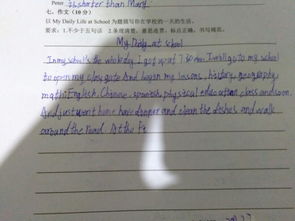 Peter is shorter than Mary.
七、作文（10分）
以 My Daily Life at School 为题描写你在学校的一天的生活。
要求：1.不少于五句话 2.条理清楚，意思连贯，标点正确，书写规范。
My Daily at school
In my school's the whole day. I get up at 7:00 am. I will go to my school
to open my class gate And began my lessons, history, geography,
math, English, Chinese, spanish, physical education class and soon.
And just went home have dinner and clean the dishes and walk
around the road. At the